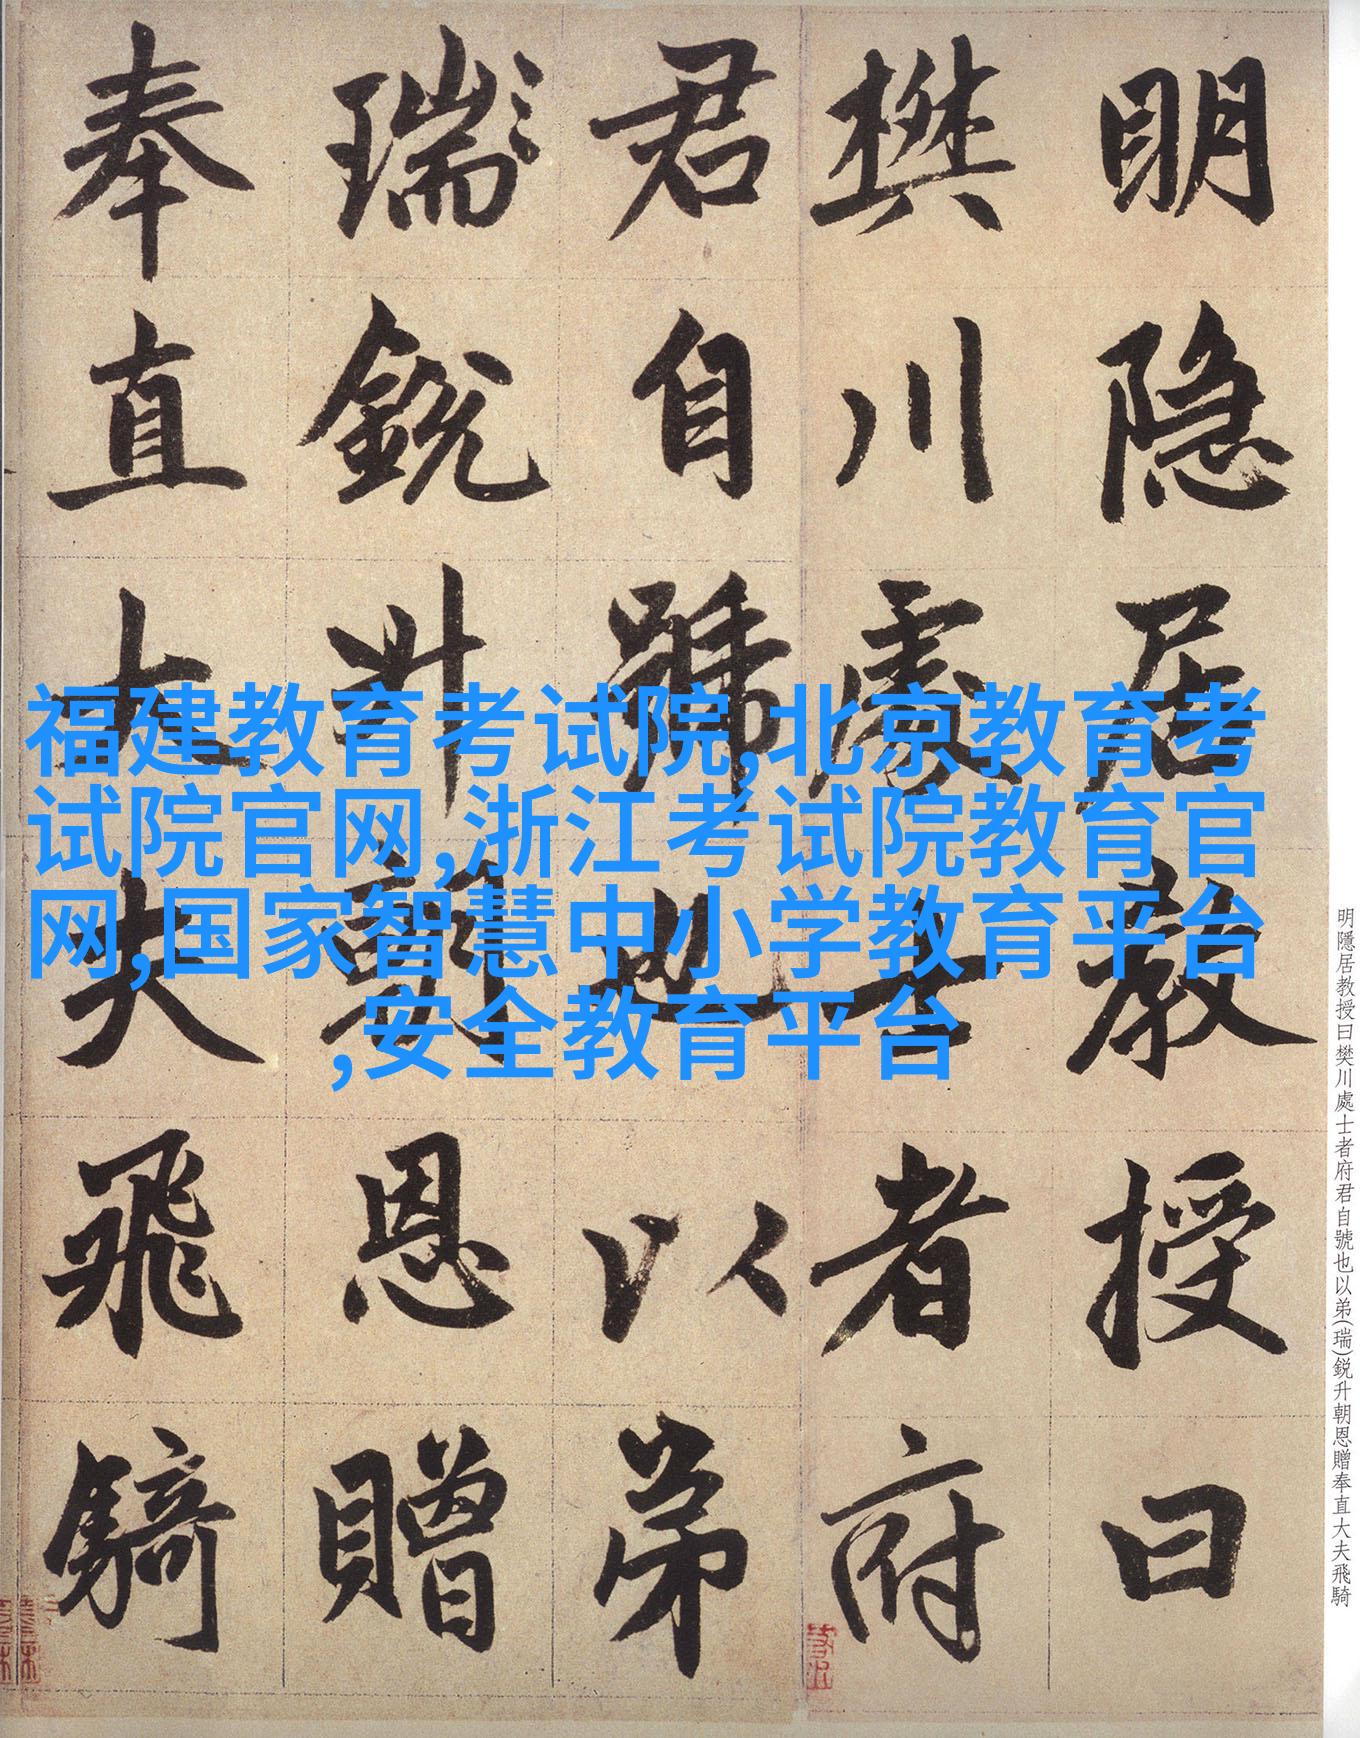 明隐居教授曰
樊川處士者府
君自號也以弟
瑞銳升朝恩贈
奉直大夫飛騎
福建教育考试院,北京教育考
试院官网,浙江考试院教育官
网,国家智慧中小学教育平台
,安全教育平台
明隱居教授曰樊川處士者府君自號也以弟(瑞)銳升朝恩贈奉直大夫飛騎